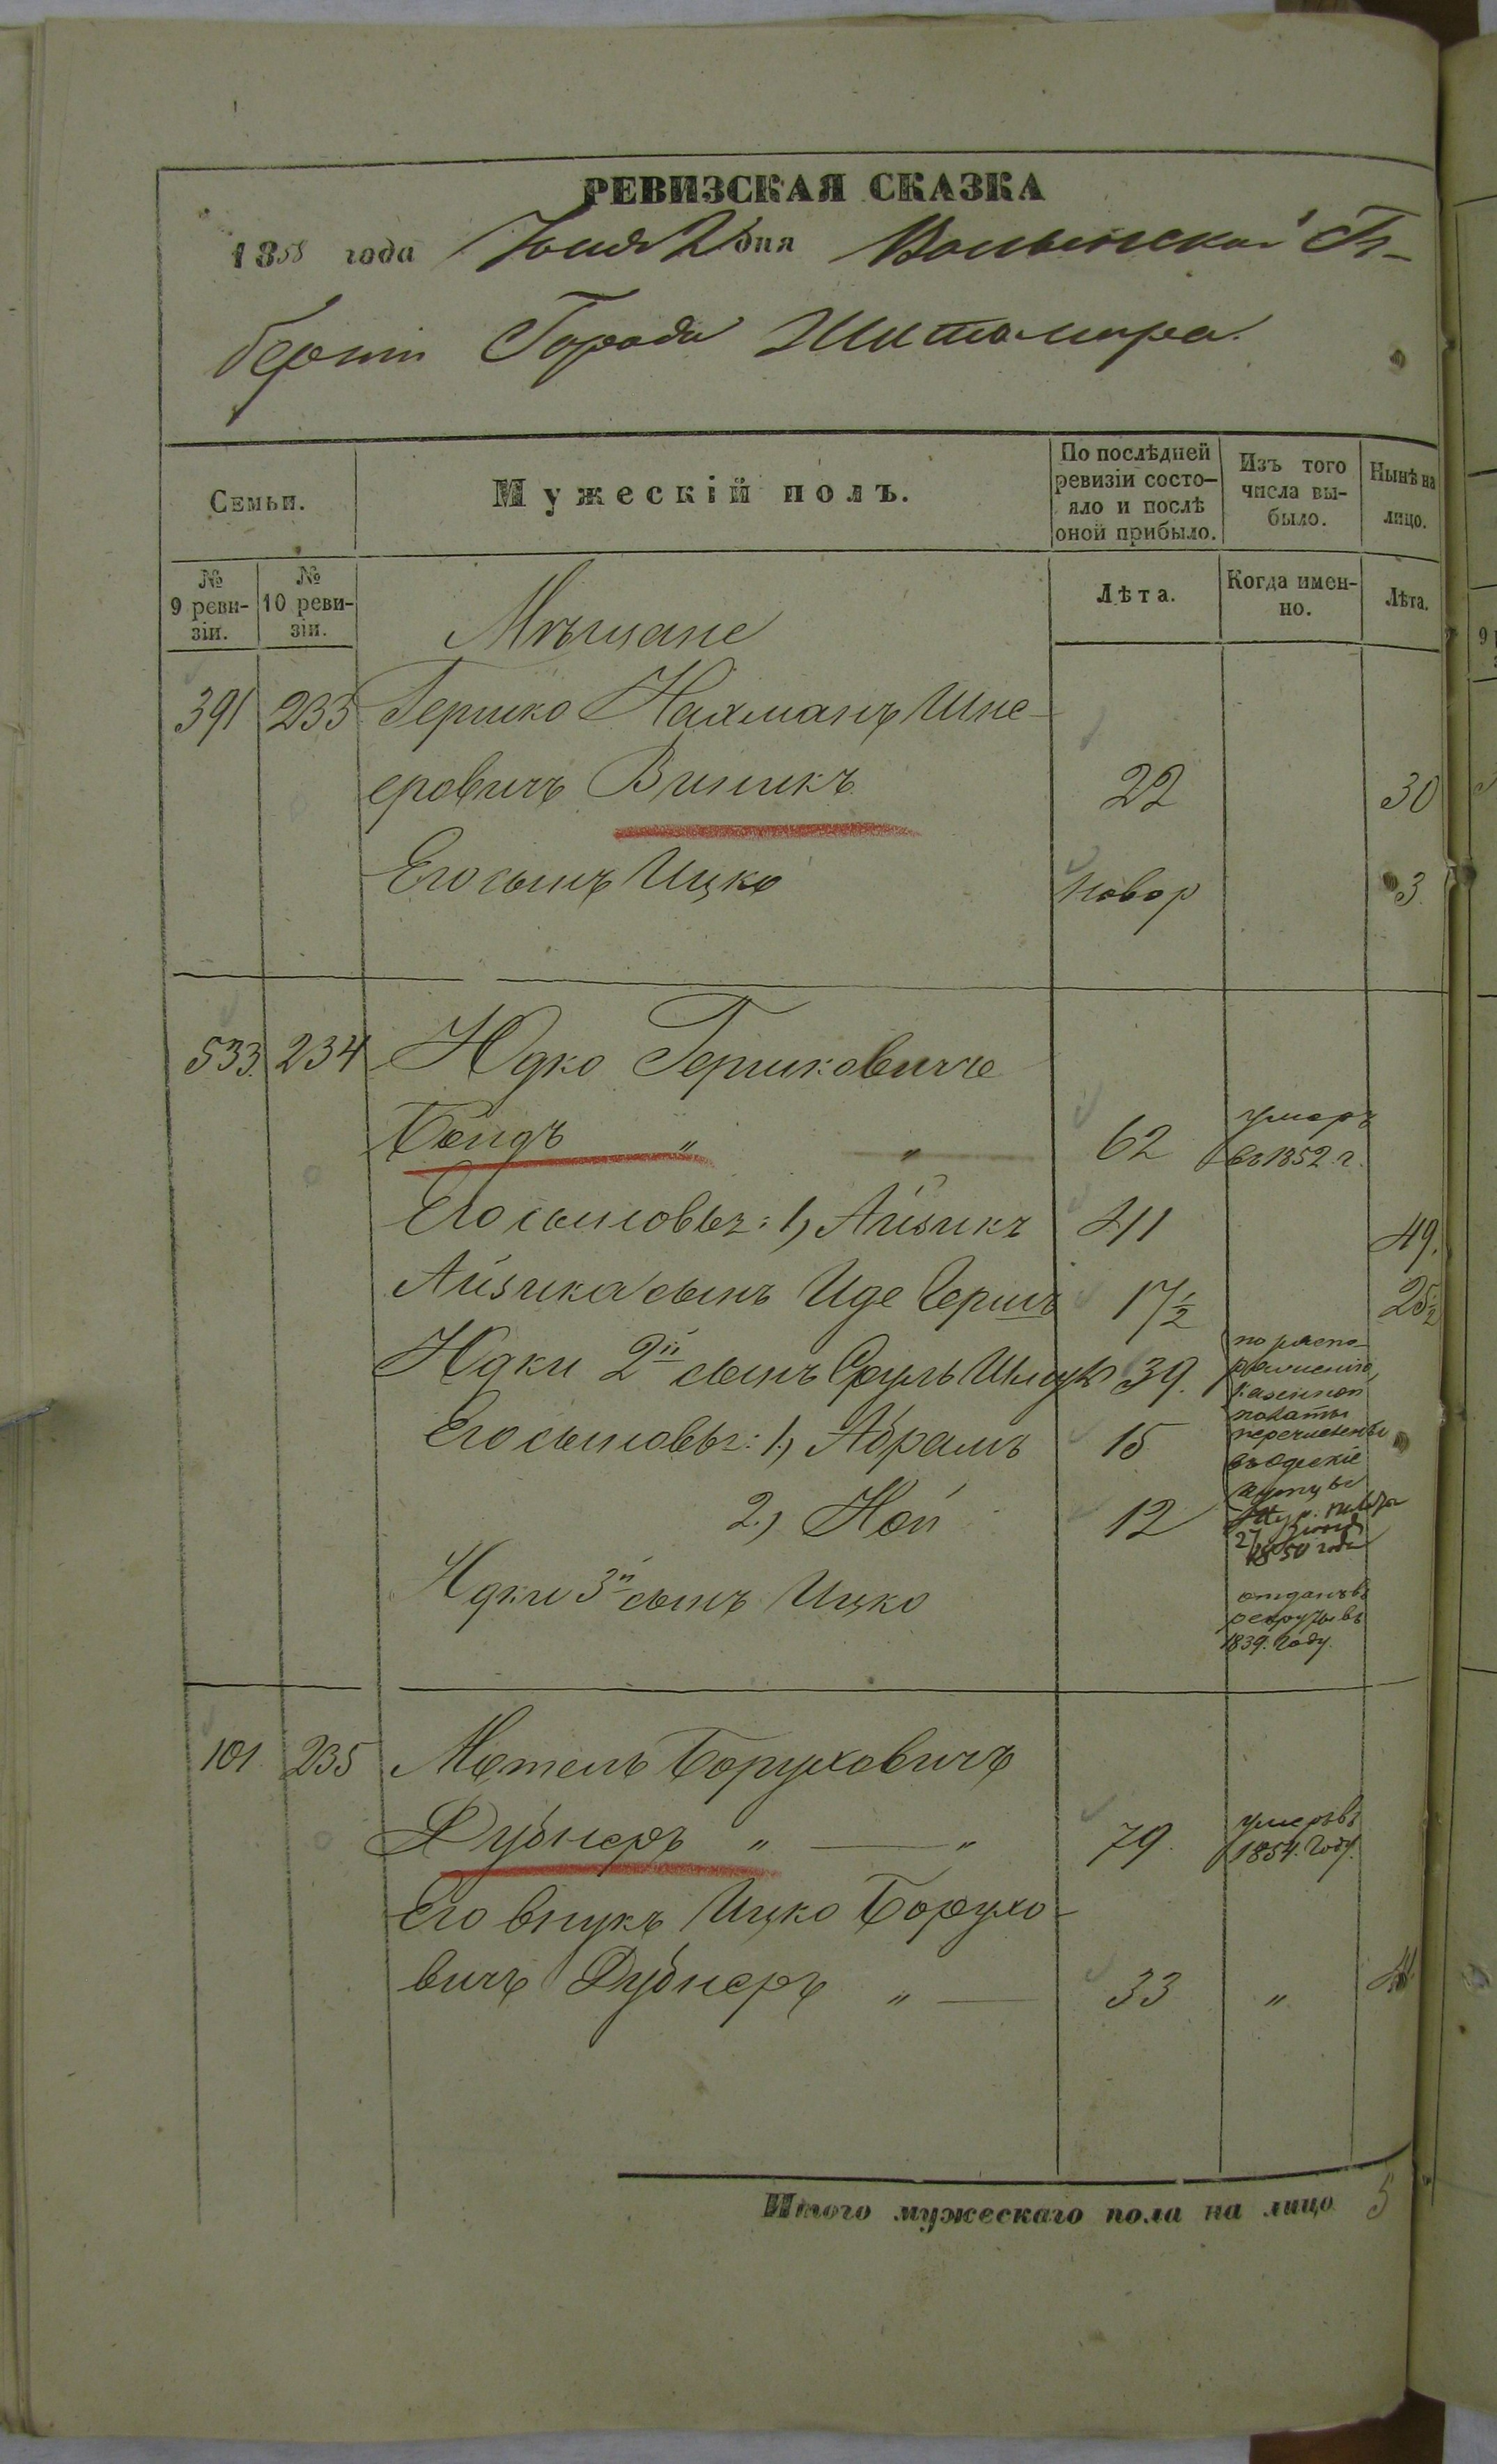 РЕВИЗСКАЯ СКАЗКА
1858 года Юня 2 дня Волынской Гу-
берніи Города Житомира.
Семьи.
Мужескій полъ.
По послѣдней ревизіи состо-яло и послѣ оной прибыло.
Изъ того числа вы-было.
Нынѣ на лицо.
№ 9 реви-зіи.
№ 10 реви-зіи.
Лѣта.
Когда имен-но.
Лѣта.
Мѣщане
391 233 Гершко Нахманъ Шне-
еровичъ Виникъ 22 30
Его сынъ Ицко новор 3
533. 234 Юдко Гершковичъ
Бендъ „ „ 62 умеръ
въ 1852. г.
Его сыновья: 1) Айзикъ 41 49.
Айзика сынъ Иде Гершъ 17 ½ 25 ½
Юдки 2й сынъ Сруль 39. по распо-
ряженію
Казенной
палаты
Его сыновья: 1.) Абрамъ 15 перечислены
въ Одескіе
купцы
2.) Ной 12 27
1850 года
Юдки 3й сынъ Ицко отданъ въ
рекруты въ
1839. году.
101 235 Мотель Боруховичъ
Дубнеръ „ „ 79. умеръ въ
1854. году.
Его внукъ Ицко Борухо-
вичъ Дубнеръ „ 33 „
Итого мужескаго пола на лицо 5